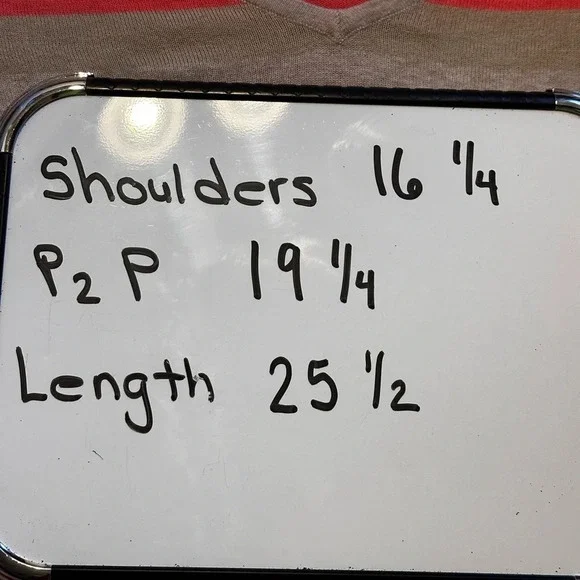 Shoulders 16 1/4
P2P 19 1/4
Length 25 1/2